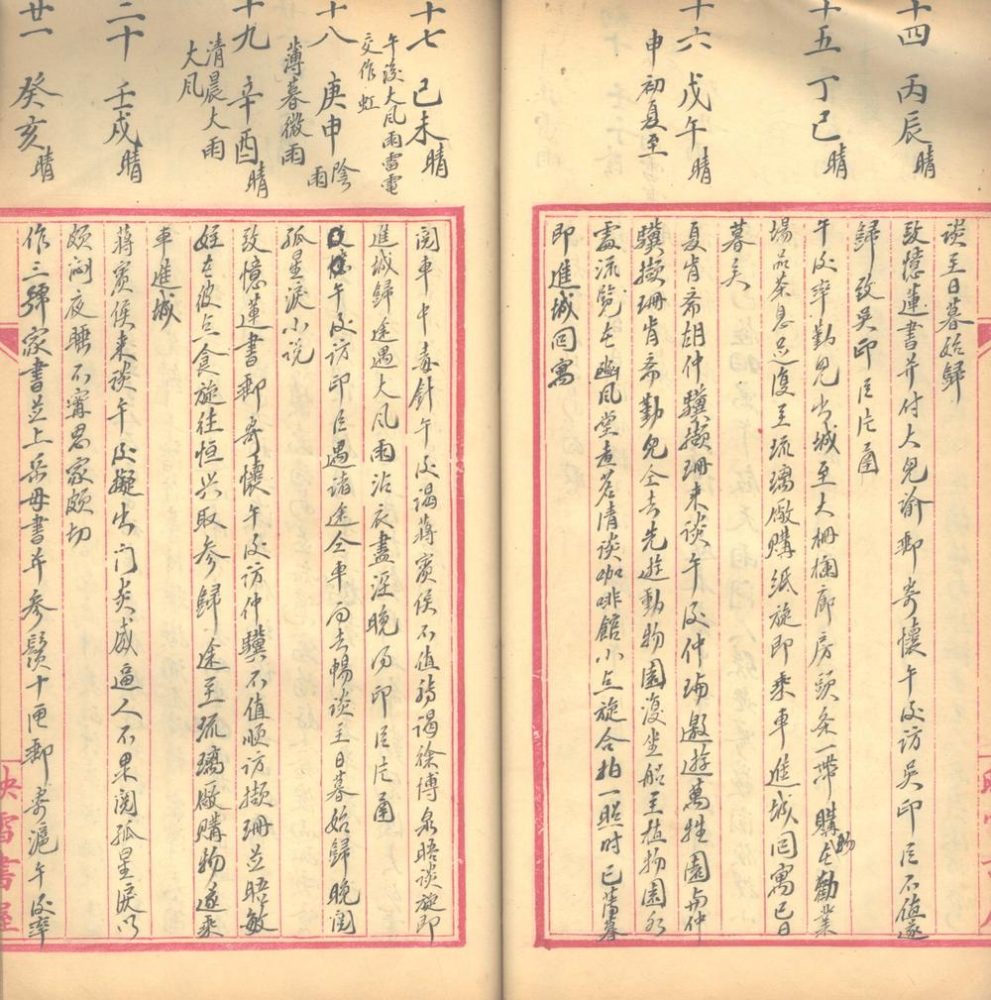 十四 丙辰 晴
談至日暮始歸
致憶蓮書并付大兒諭郵寄懷午後訪吳印臣不值遂
歸致吳印臣片函
十五 丁巳 晴
午後率勤兒出城至大柵欄廊房頭条一帶購物在勸業
場品茶息足復至琉璃廠購紙旋即乘車進城回寓已日
暮矣
十六 戊午 晴
申初夏至
夏肖齋胡仲驥擷珊來談午後仲瑜邀遊萬牲園與仲
驥擷珊肖齋勤兒仝去先遊動物園復坐船至植物園各
處流覽在豳風堂煮茗清談咖啡館小点旋合拍一照时已薄暮
即進城回寓
十七 己未 晴
午後大風雨雷電
交作 虹
閱車中毒針午後謁蔣賓侯不值詣謁徐博泉晤談旋即
進城歸途遇大風雨沾衣盡溼晚得印臣片函
十八 庚申 陰雨
薄暮微雨
午後訪印臣遇諸途仝車而去暢談至日暮始歸晚閱
孤星淚小説
十九 辛酉 晴
清晨大雨
大風
致憶蓮書郵寄懷午後訪仲驥不值順訪擷珊並晤敏
姪在彼点食旋往恒興取參歸途至琉璃廠購物遂乘
車進城
二十 壬戌 晴
蔣賓侯來談午後擬出门炎威逼人不果閱孤星淚以
頗悶夜睡不甯思家頗切
廿一 癸亥 晴
作三號家書並上岳母書并參鬚十匣郵寄滬午後率
映雪書屋